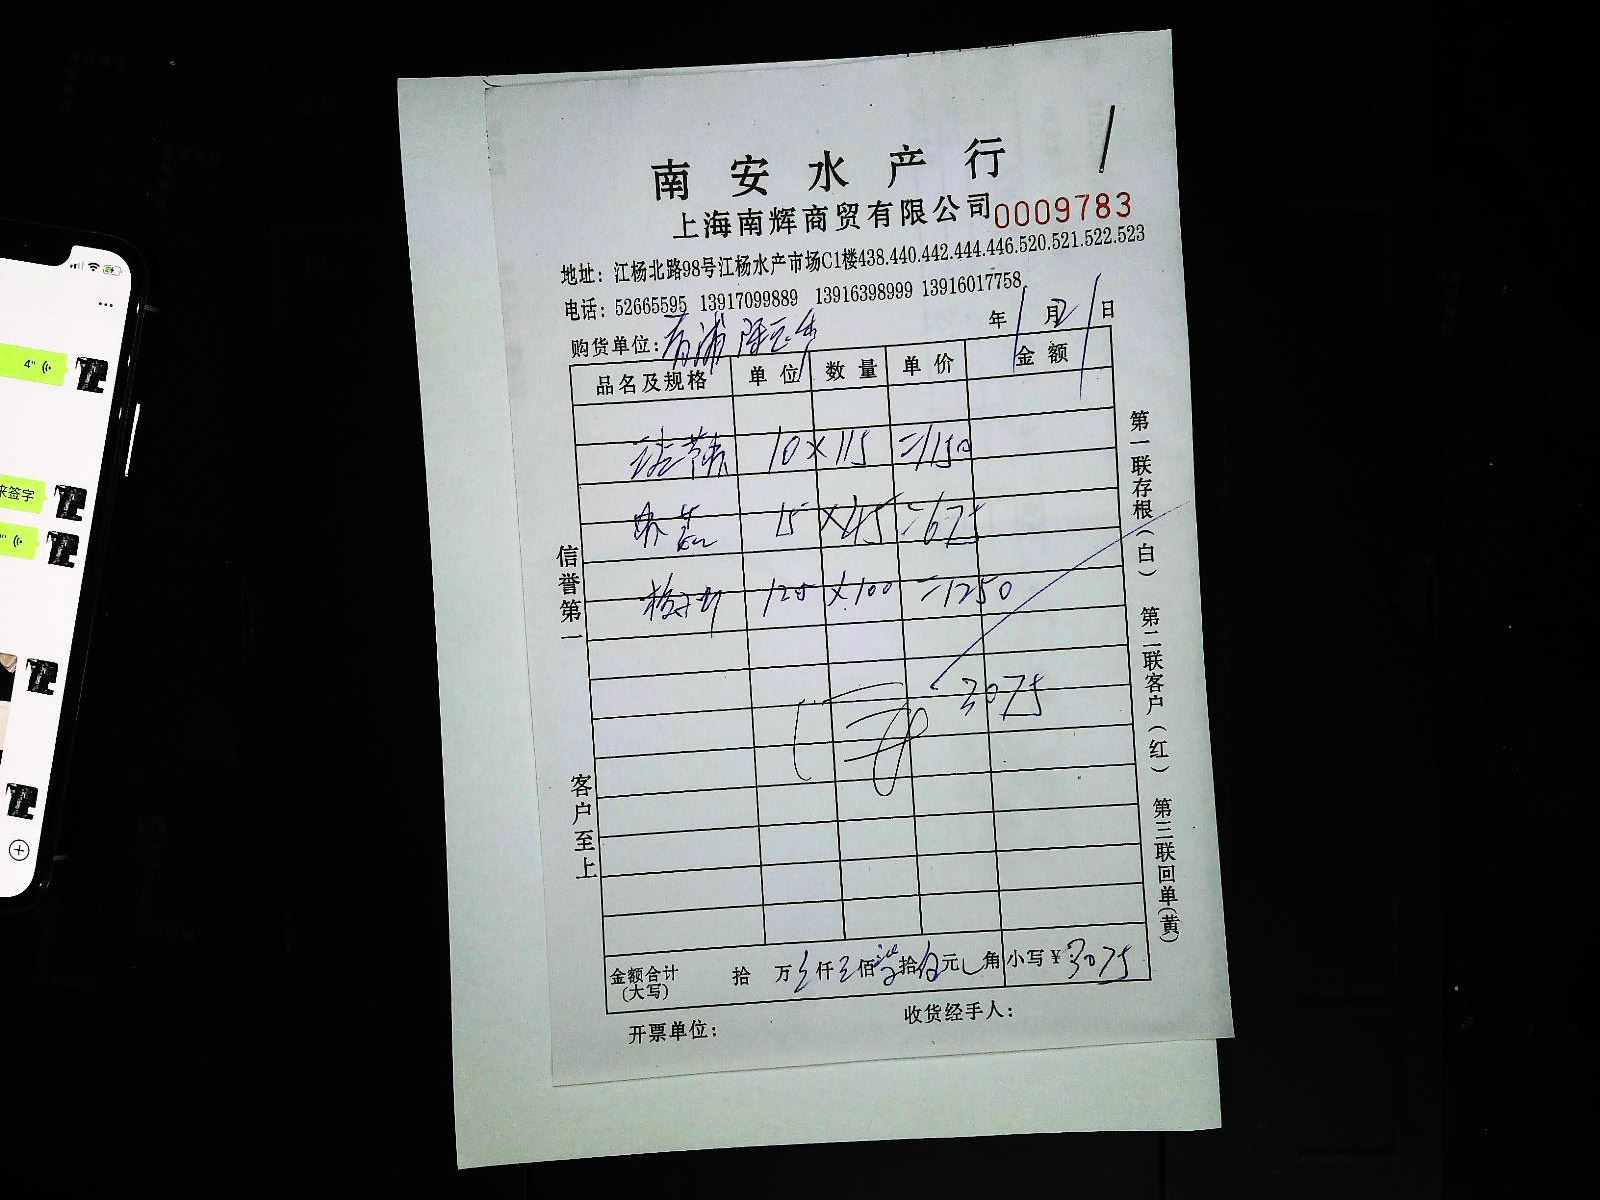 南安水产行
上海南辉商贸有限公司 0009783
地址：江杨北路98号江杨水产市场C1楼438.440.442.444.446.520.521.522.523
电话：52665595 13917099889 13916398999 13916017758
购货单位：青浦 年1月21日
品名及规格 单位 数量 单价 金额
10×115=1150
15×45=675
125×100=1250
3075
金额合计(大写) 拾 万 仟 佰 拾 元 角 小写￥3075
开票单位： 收货经手人：
信誉第一 客户至上
第一联存根(白) 第二联客户(红) 第三联回单(黄)
4"
来签字